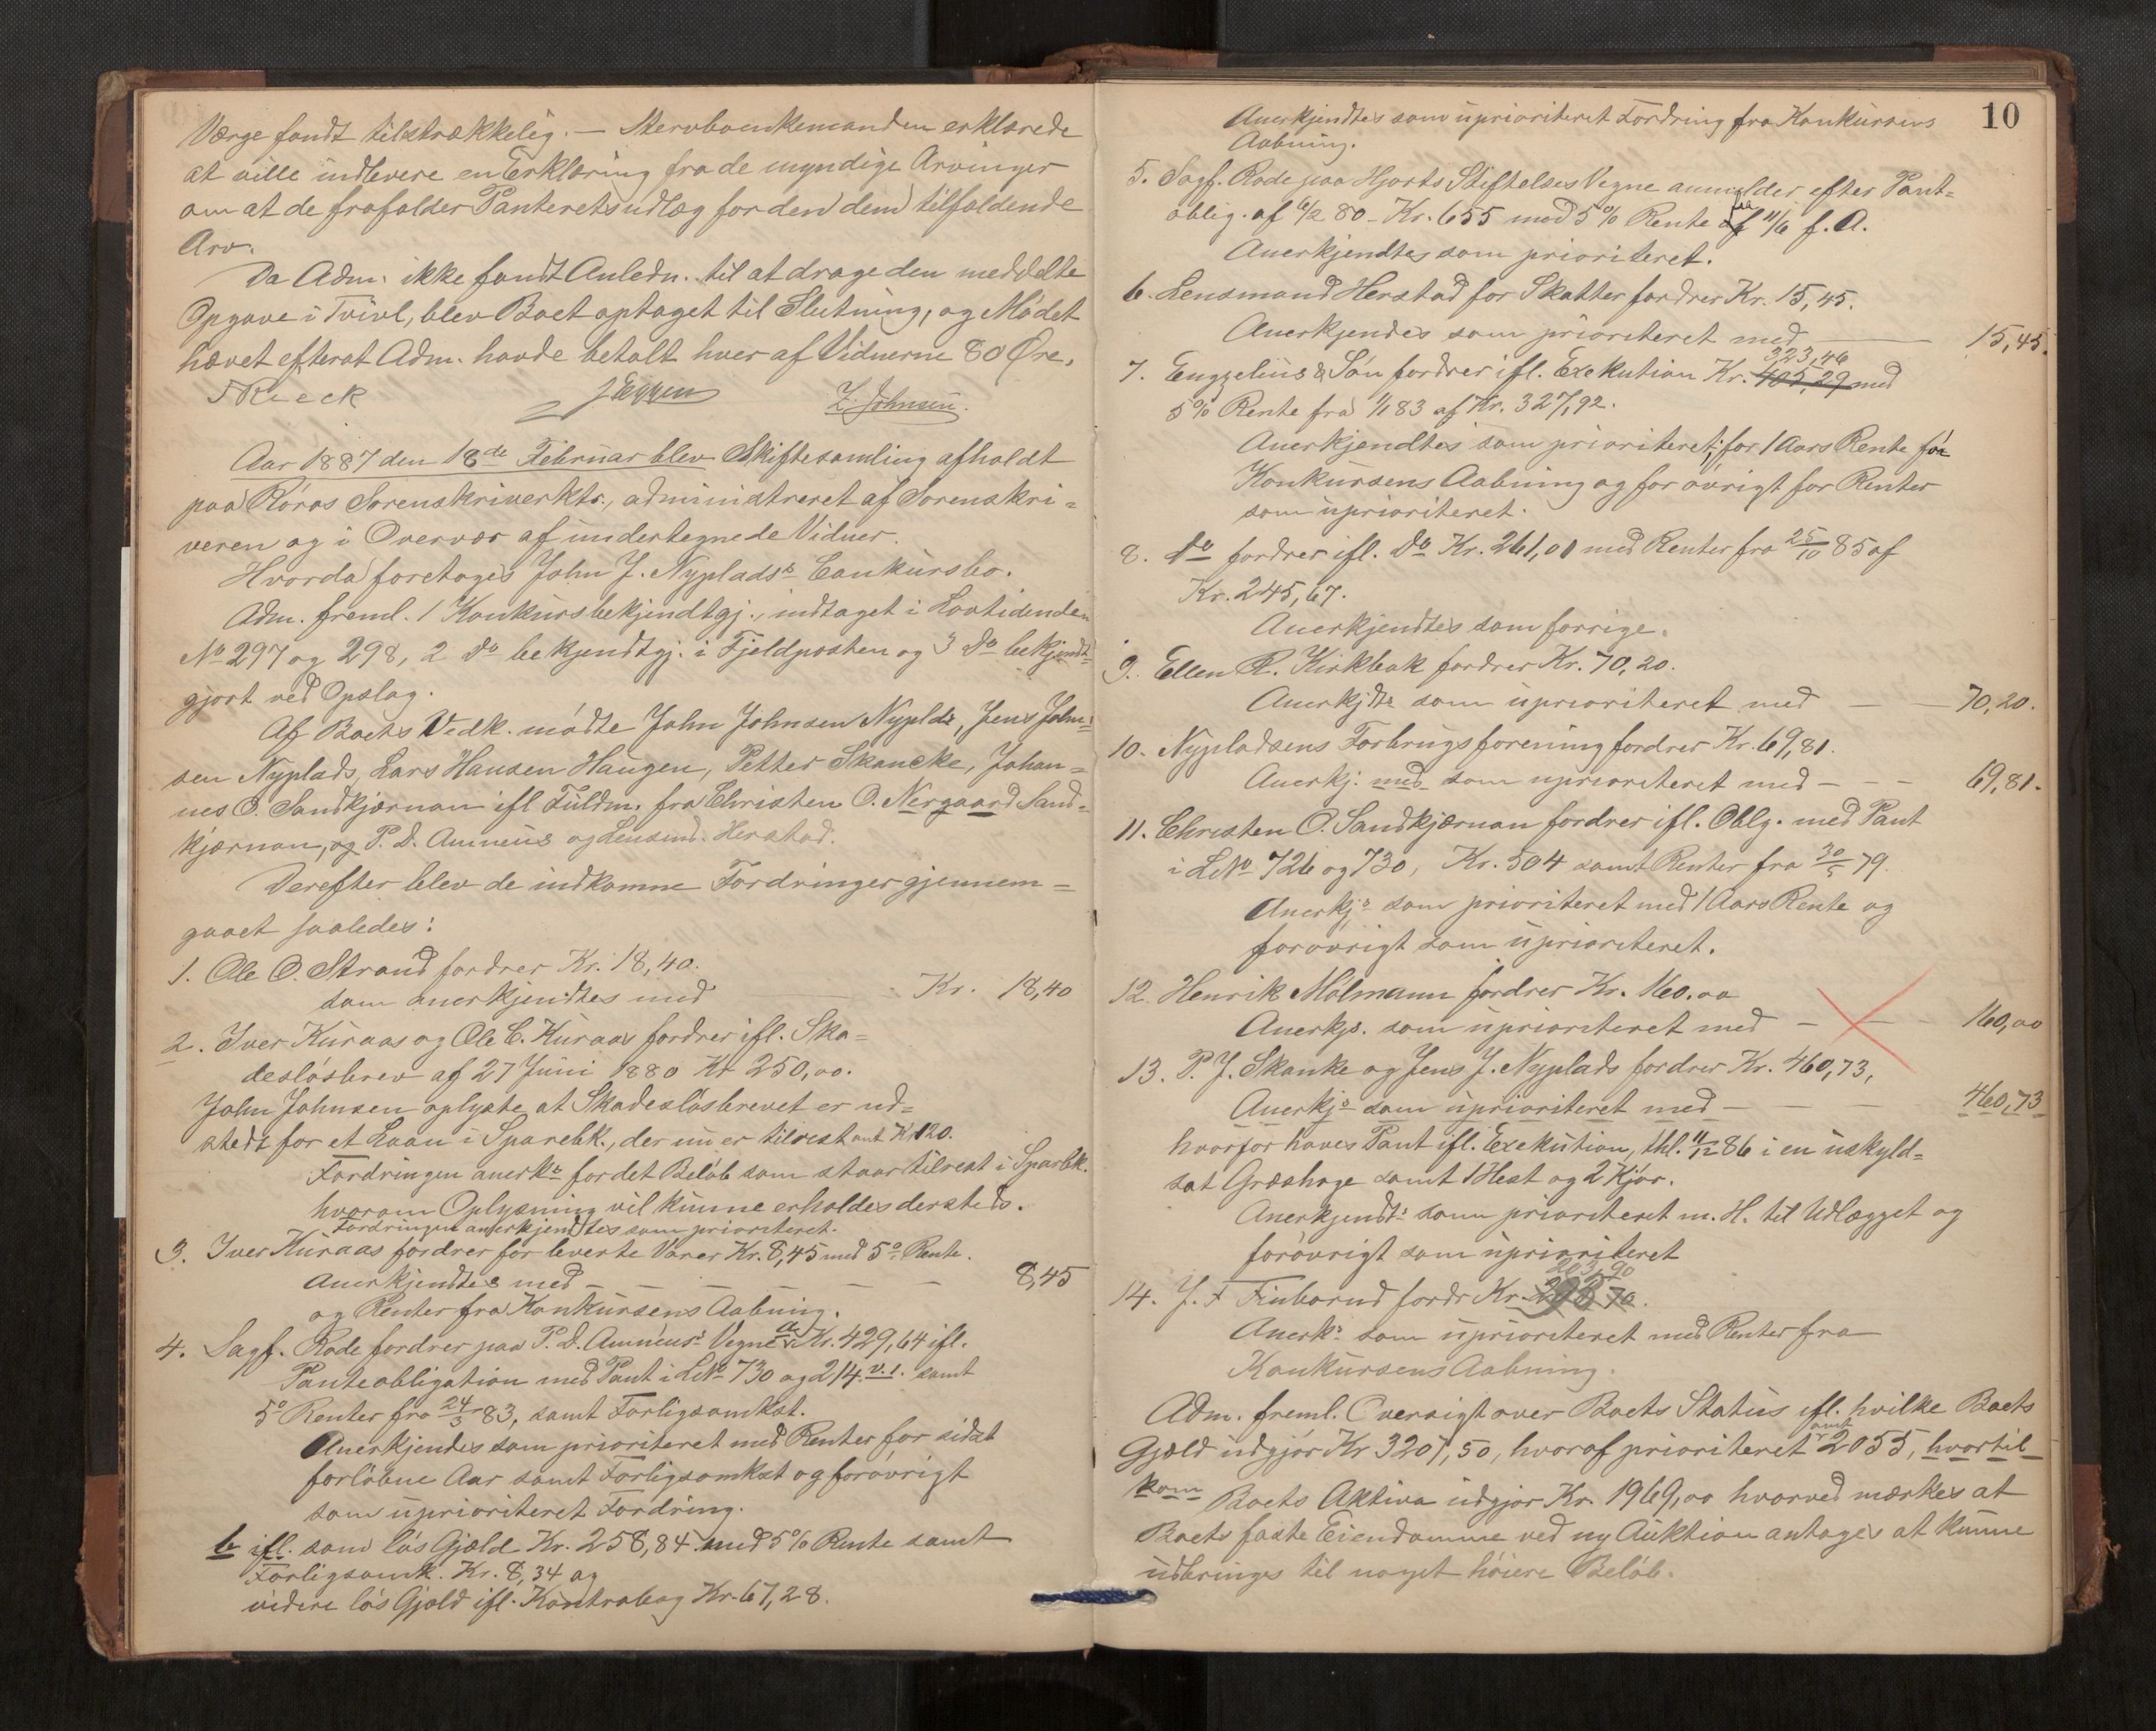 Værge fandt tilstrækkelig. — Stervboenkemanden erklærede
at ville indlevere en Erklæring fra de myndige Arvinger
om at de frafalder Panteretsudlæg for den dem tilfaldende
Arv.
Da Adm. ikke fandt Anledn. til at drage den meddelte
Opgave i Tvivl, blev Boet optaget til Slutning, og Mødet
hævet efterat Adm. havde betalt hver af Vidnerne 80 Øre.
Rieck J Eggen Z. Johnsen.
Aar 1887 den 18de Februar blev Skiftesamling afholdt
paa Røros Sorenskriverktr., administreret af Sorenskri=
veren og i Overvær af undertegnede Vidner.
Hvorda foretoges John J. Nyplads's Conkursbo.
Adm. freml. 1 Konkursbekjendtgj., indtaget i Lovtidenden
No 297 og 298, 2 Do bekjendtgj. i Fjeldposten og 3 Do bekjendt=
gjort ved Opslag.
Af Boets Vedk. mødte John Johnsen Nyplds, Jens John=
sen Nyplads, Lars Hansen Haugen, Petter Skancke, Johan=
nes O. Sandkjærnan ifl Fuldm. fra Christen O. Nergaard Sand=
kjærnan, og P. D. Amneus og Lensmd. Herstad.
Derefter blev de indkomne Fordringer gjennem=
gaaet saaledes:
1. Ole O. Strand fordrer Kr. 18,40.
som anerkjendtes med — Kr. 18,40
2. Iver Kuraas og Ole C. Kuraas fordrer ifl. Ska=
desløsbrev af 27 Juni 1880 Kr 250,00.
John Johnsen oplyste at Skadesløsbrevet er ud=
stedt for et Laan i Sparebk., der nu er tilrestant Kr 120.
Fordringen anerks for det Beløb som staar tilrest i Sparbk.
hvorom Oplysning vil kunne erholdes dersteds.
Fordringen anerkjendtes som prioriteret.
3. Iver Kuraas fordrer for leverte Varer Kr. 8,45 med 5% Rente.
Anerkjendtes med — — — — — 8,45
og Renter fra Konkursens Aabning.
4. Sagf. Rode fordrer paa P. D. Amneus's Vegne a Kr. 429,64 ifl.
Panteobligation med Pant i LNo 730 og 214 v. 1. samt
5% Renter fra 24/3 83, samt Forligsomkst.
Anerkjendes som prioriteret med Renter for sidst
forløbne Aar samt Forligsomkst og forøvrigt
som uprioriteret Fordring.
b ifl. som løs Gjæld Kr. 258,84 med 5% Rente samt
Forligsomk. Kr. 8,34 og
videre løs Gjæld ifl. Kontrabog Kr. 67,28.
10
Anerkjendtes som uprioriteret Fordring fra Konkursens
Aabning.
5. Sagf. Rode paa Hjorts Stiftelses Vegne anmelder efter Pant=
oblig. af 6/2 80 - Kr. 655 med 5% Rente fra 11/6 f. A.
Anerkjendtes som prioriteret.
6. Lensmand Herstad for Skatter fordrer Kr. 15,45.
Anerkjendes som prioriteret med — 15,45.
323,46
7. Engzelius & Søn fordrer ifl. Exekution Kr. 405,29 med
5% Rente fra 1/1 83 af Kr. 327,92.
Anerkjendtes som prioriteret; for 1 Aars Rente før
Konkursens Aabning og for øvrigt for Renter
som uprioriteret.
8. Do fordrer ifl. Do Kr. 261,01 med Renter fra 25/10 85 af
Kr. 245,67.
Anerkjendtes som forrige.
9. Ellen R. Kirkbak fordrer Kr. 70,20.
Anerkjdts som uprioriteret med — — 70,20.
10. Nypladsens Forbrugsforening fordrer Kr. 69,81.
Anerkj. med som uprioriteret med — — — 69,81.
11. Christen O. Sandkjærnan fordrer ifl. Oblg. med Pant
i LNo 726 og 730, Kr. 504 samt Renter fra 30/5 79.
Anerkjs som prioriteret med 1 Aars Rente og
forøvrigt som uprioriteret.
12. Henrik Mølmann fordrer Kr. 160.00
Anerkjs. som uprioriteret med — — 160,00
13. P. J. Skanke og Jens J. Nyplads fordrer Kr. 460,73,
Anerkjs som uprioriteret med — — — 460,73
hvorfor haves Pant ifl. Exekution, thl. 11/12 86 i en uskyld=
sat Græshage samt 1 Hest og 2 Kjør.
Anerkjendts som prioriteret m. H. til Udlægget og
forøvrigt som uprioriteret
203,90
14. J. F Finborud fordr Kr. 70.
Anerks som uprioriteret med Renter fra
Konkursens Aabning.
Adm. freml. Oversigt over Boets Status ifl. hvilke Boets
Gjæld udgjør Kr 3201,50, hvoraf prioriteret omt 2055, hvortil
kom Boets Aktiva udgjør Kr. 1969,00 hvorved mærkes at
Boets faste Eiendomme ved ny Auktion antages at kunne
udbringes til noget høiere Beløb.